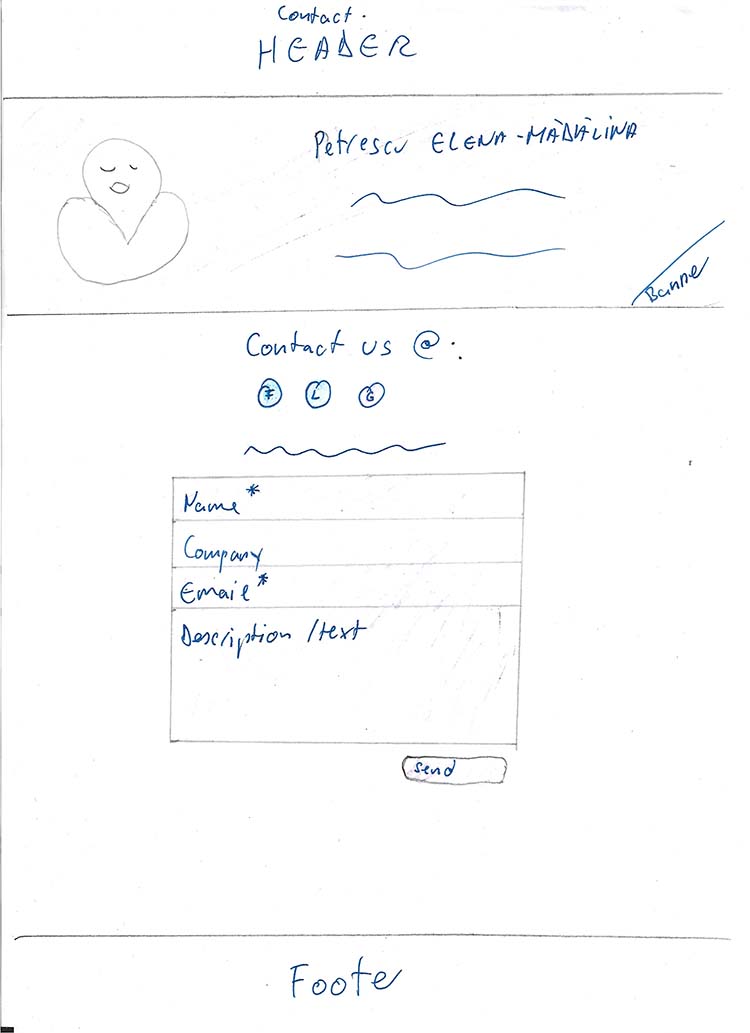 Contact.
HEADER
Petrescu ELENA-MĂDĂLINA
Banne
Contact us @:
F L G
Name*
Company
Email*
Description /text
send
Foote